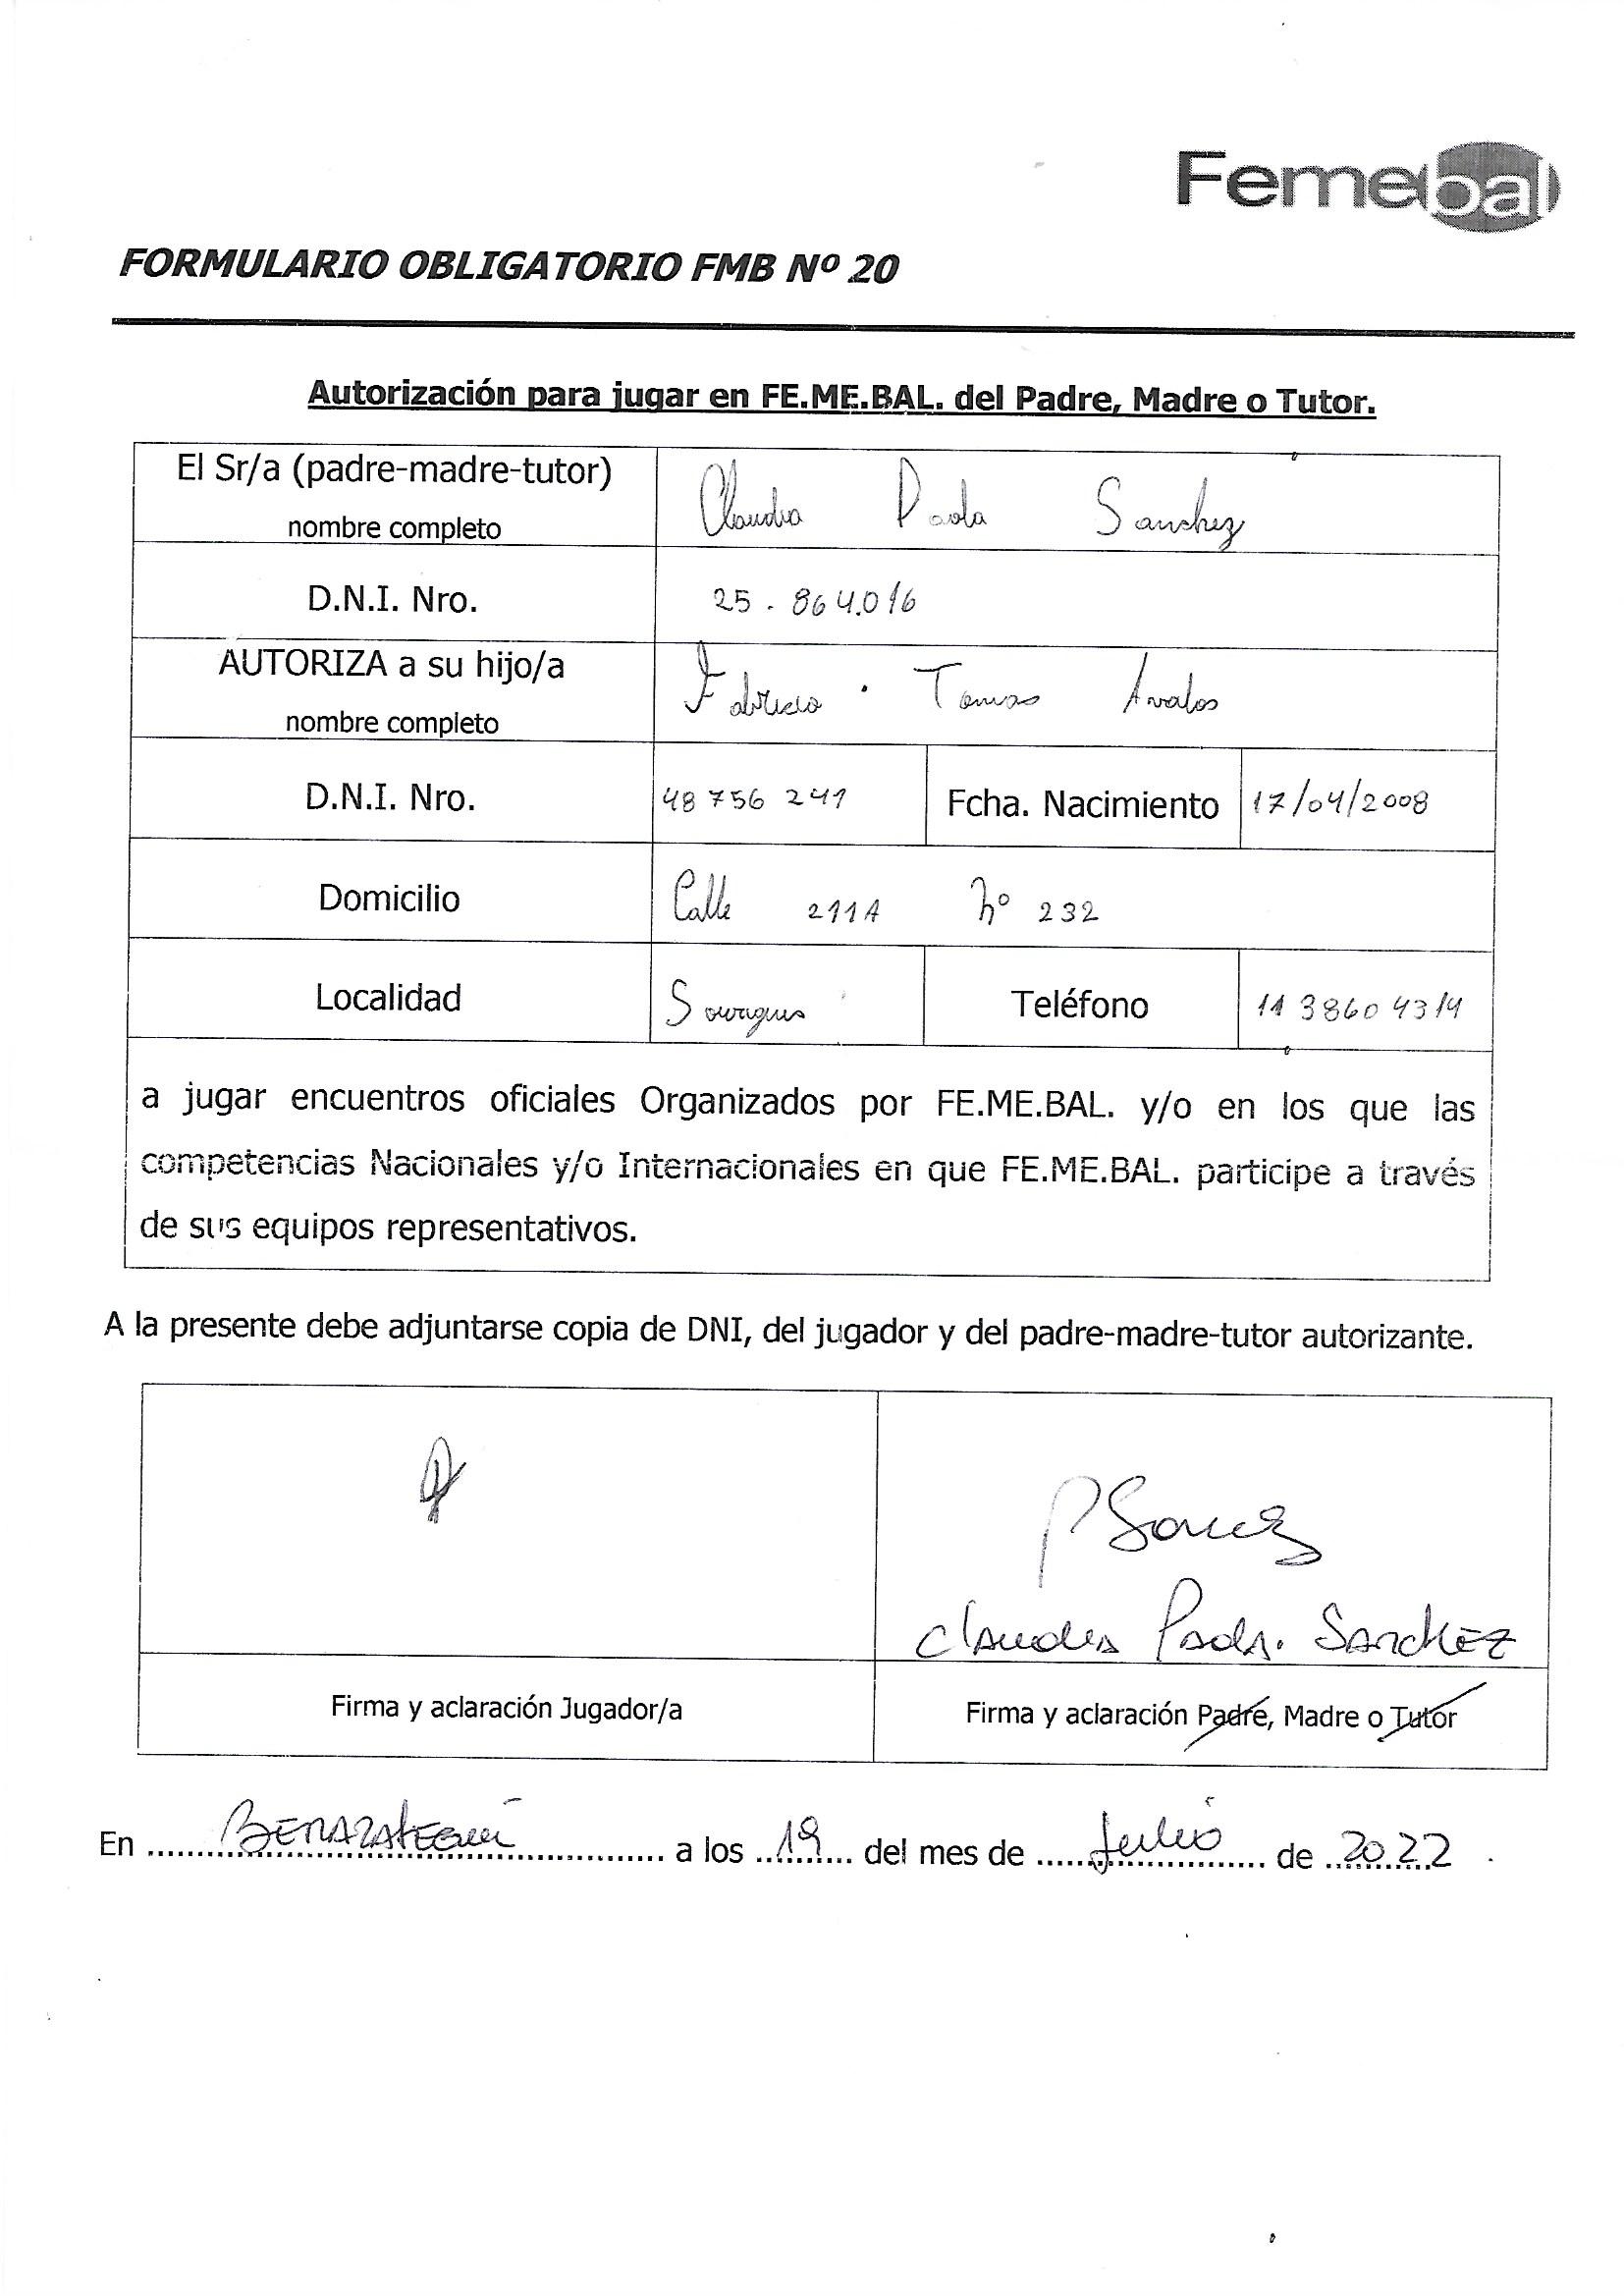 Femebal
FORMULARIO OBLIGATORIO FMB Nº 20
Autorización para jugar en FE.ME.BAL. del Padre, Madre o Tutor.
El Sr/a (padre-madre-tutor)
nombre completo
Claudia Paola Sanchez
D.N.I. Nro.
25.864.016
AUTORIZA a su hijo/a
nombre completo
Fabricio Tomas Avalos
D.N.I. Nro.
48 756 241
Fcha. Nacimiento
17/04/2008
Domicilio
Calle 211A Nº 232
Localidad
Sourigues
Teléfono
11 3860 4314
a jugar encuentros oficiales Organizados por FE.ME.BAL. y/o en los que las
competencias Nacionales y/o Internacionales en que FE.ME.BAL. participe a través
de sus equipos representativos.
A la presente debe adjuntarse copia de DNI, del jugador y del padre-madre-tutor autorizante.
Claudia Paola Sanchez
Firma y aclaración Jugador/a
Firma y aclaración Padre, Madre o Tutor
En BERAZATEGUI a los 19 del mes de Julio de 2022.